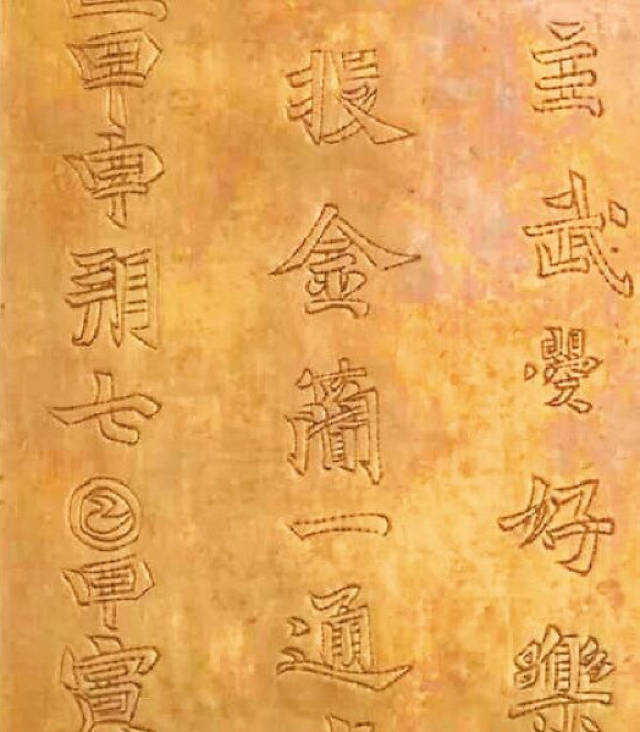 主武曌好樂
投金簡一通
甲申朔七𡆠甲寅